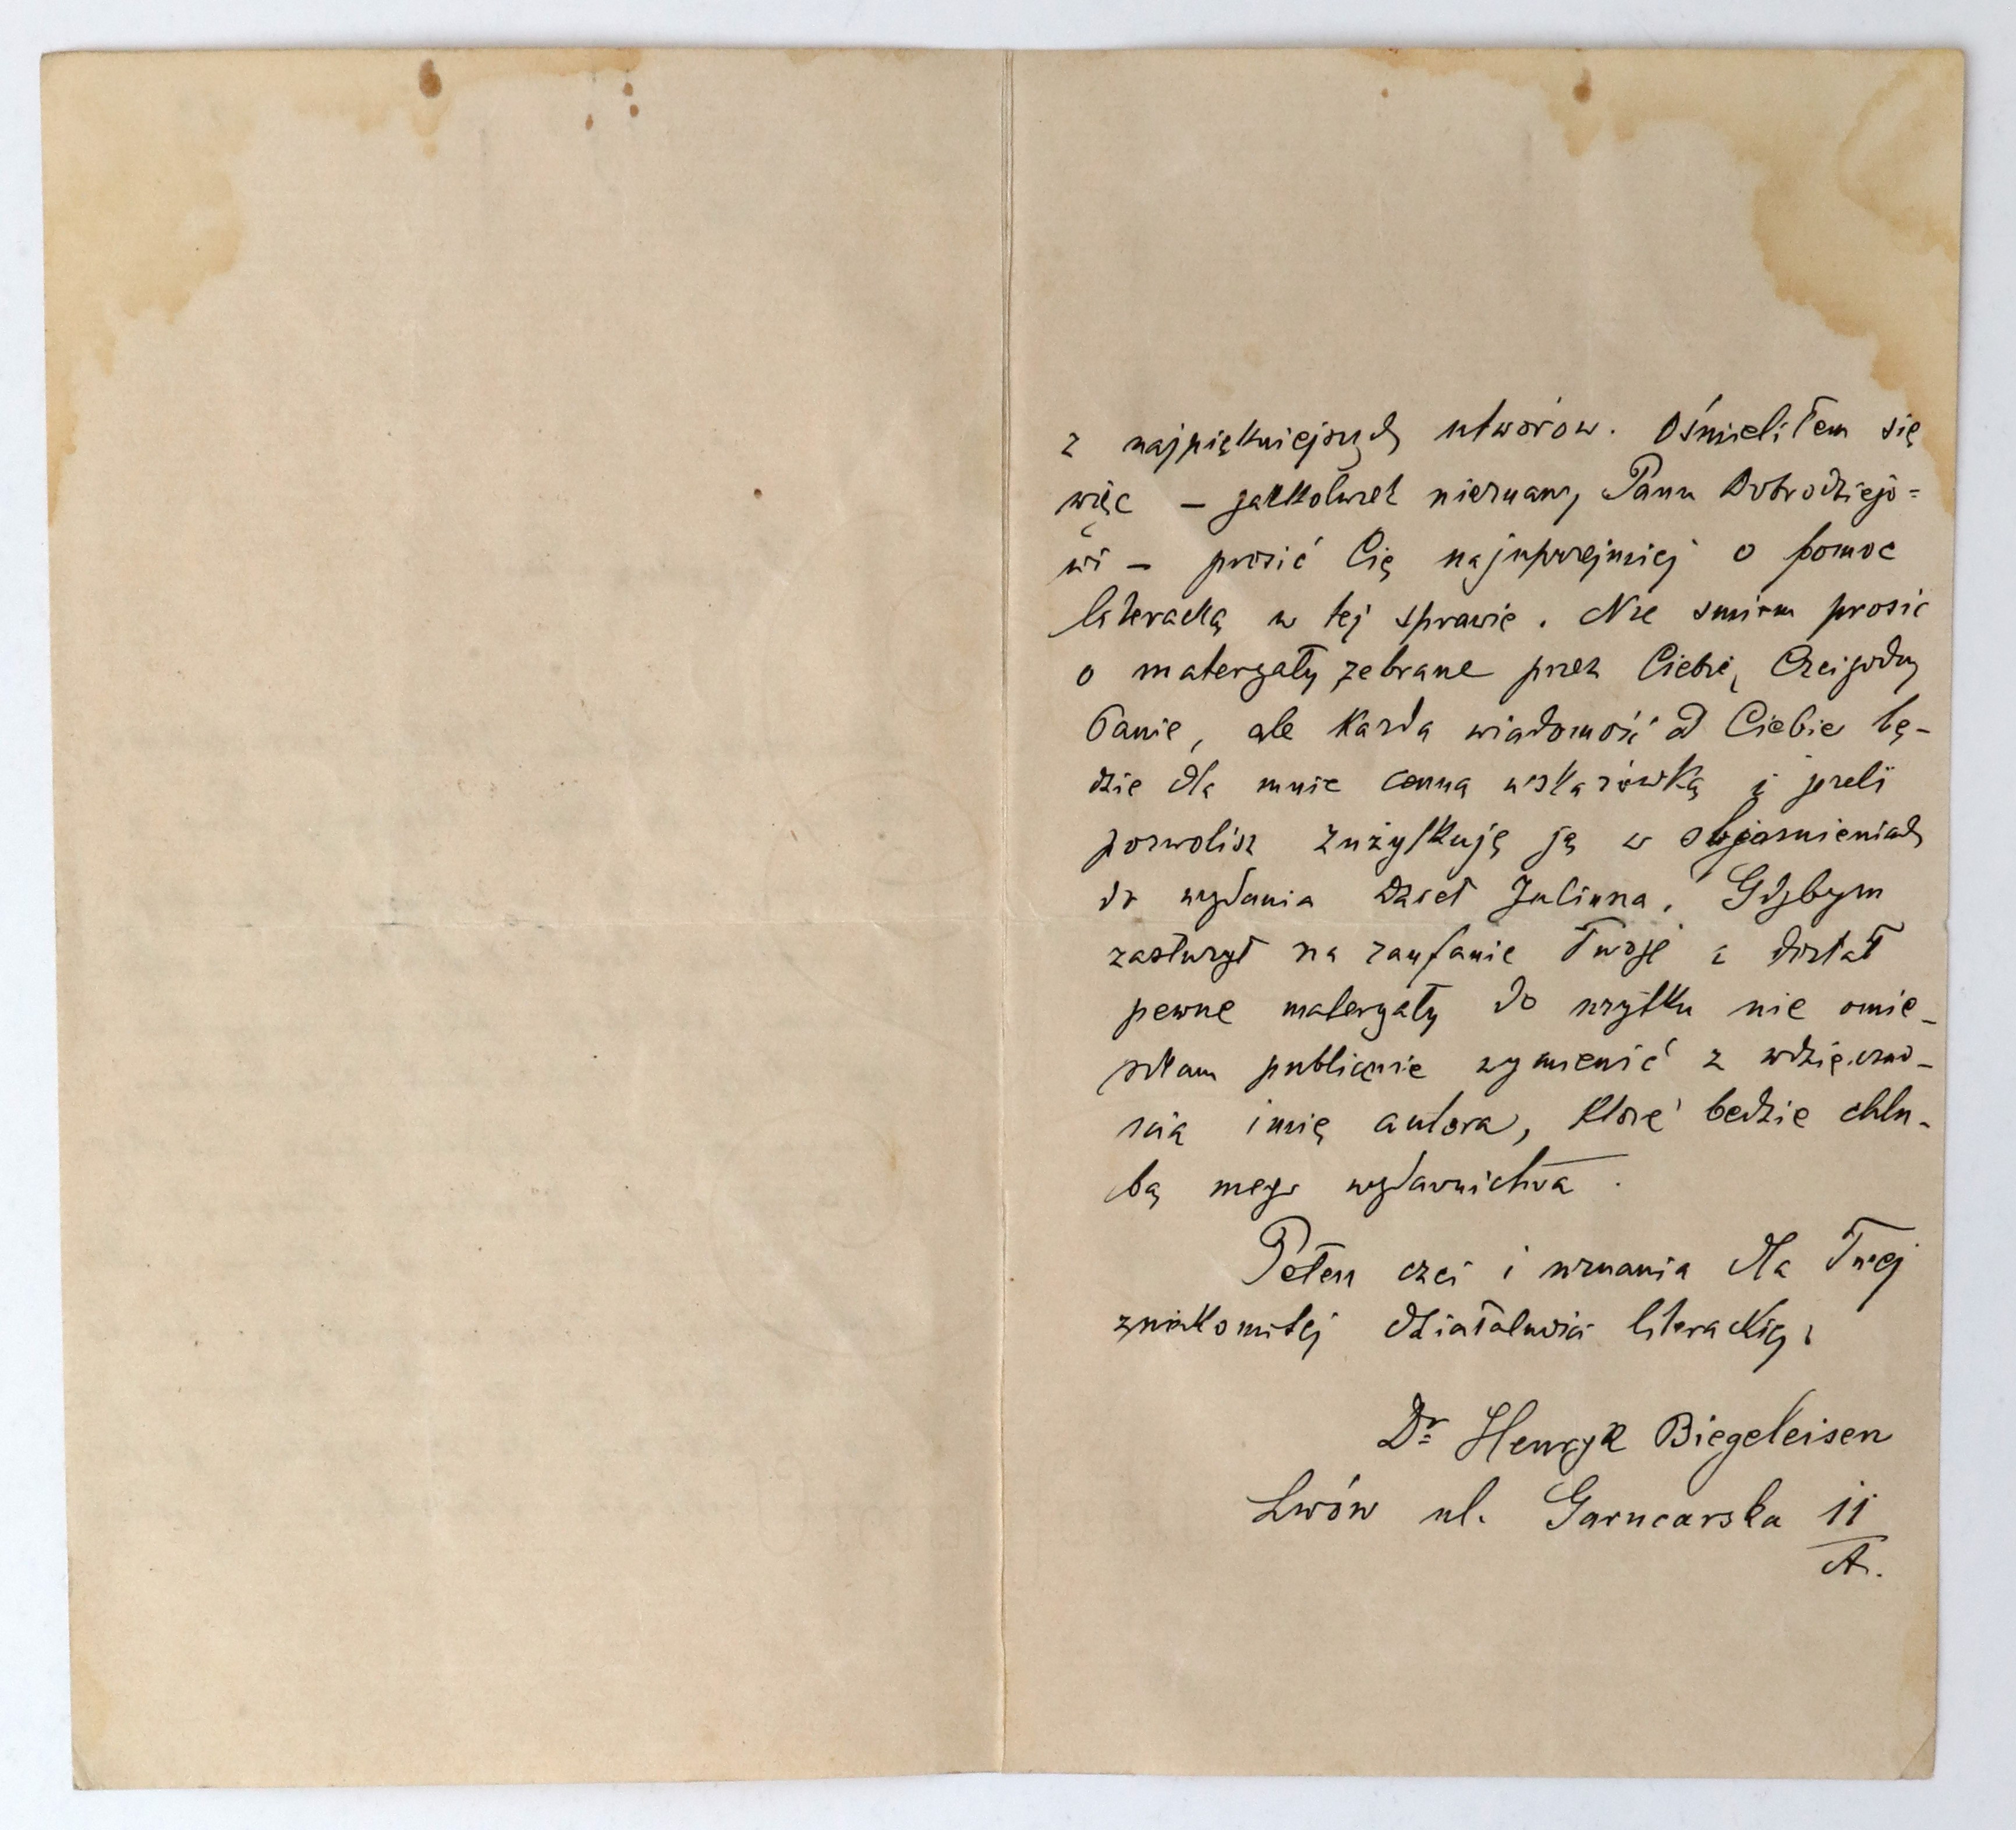 z najpiękniejszych utworów. Ośmieliłem się
więc – jakkolwiek nieznany Panu Dobrodziejo=
wi – prosić Cię najuprzejmiej o pomoc
literacką w tej sprawie. Nie śmiem prosić
o materyały zebrane przez Ciebie, Czcigodny
Panie, ale każda wiadomość od Ciebie bę-
dzie dla mnie cenną wskazówką i jeżeli
pozwolisz zużytkuję ją w objaśnieniach
do wydania dzieł Juliusza. Gdybym
zasłużył na zaufanie Twoje i dostał
pewne materyały do użytku nie omie-
szkam publicznie wymienić z wdzięczno-
ścią imię autora, które będzie chlu-
bą mego wydawnictwa.
Pełen czci i uznania dla Twej
znakomitej działalności literackiej
Dr Henryk Biegeleisen
Lwów ul. Garncarska 11
A.